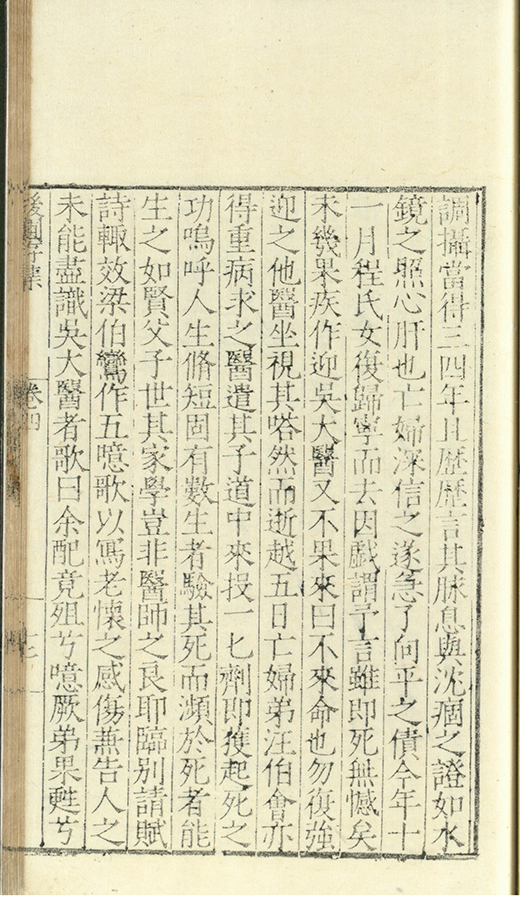 調攝當得三四年且歷歷言其脉息與沈痼之證如水
鏡之照心肝也亡婦深信之遂急了向平之債今年十
一月程氏女復歸寧而去因戲謂予言雖即死無憾矣
未幾果疾作迎吳大醫又不果來曰不來命也勿復強
迎之他醫坐視其嗒然而逝越五日亡婦弟汪伯會亦
得重病求之醫遣其子道中來投一匕劑即獲起死之
功嗚呼人生脩短固有數生者驗其死而瀕於死者能
生之如賢父子世其家學豈非醫師之良耶臨別請賦
詩輙效梁伯鸞作五噫歌以寫老懷之感傷兼告人之
未能盡識吳大醫者歌曰余配竟殂兮噫厥弟果甦兮
卷四